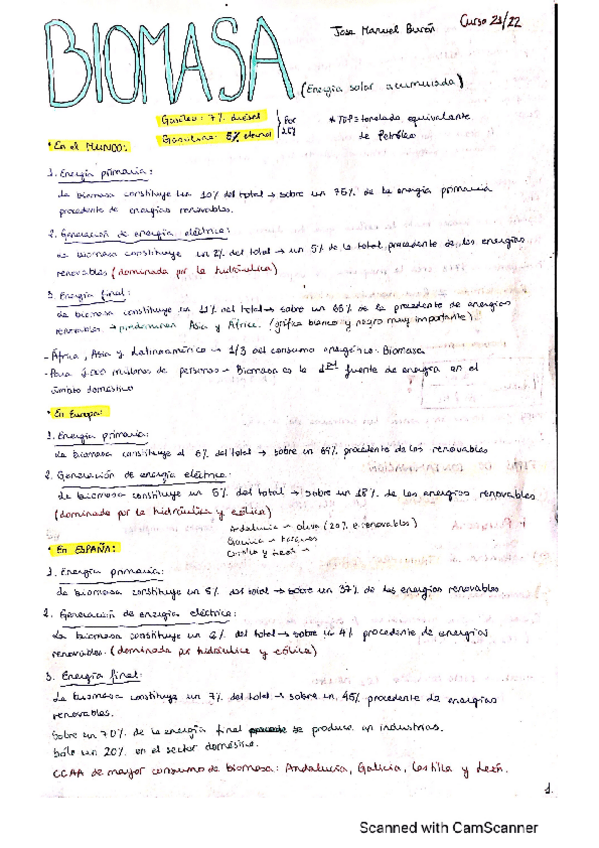 BIOMASA
Jose Manuel Burón
Curso 21/22
(Energía solar acumulada)
Gasóleo: 7% diésel
Gasolina: 5% etanol
Por
* TEP = tonelada equivalente
de Petróleo
* En el MUNDO:
1. Energía primaria:
La biomasa constituye un 10% del total → sobre un 75% de la energía primaria
procedente de energías renovables.
2. Generación de energía eléctrica:
La biomasa constituye un 2% del total → un 5% de la total procedente de las energías
renovables (dominada por la hidráulica)
3. Energía final:
La biomasa constituye un 11% del total → sobre un 65% de la procedente de energías
renovables → predominan Asia y África. (gráfica blanco y negro muy importante)
- África, Asia y Latinoamérica → 1/3 del consumo energético: Biomasa
- Para millones de personas → Biomasa es la 1ª fuente de energía en el
ámbito doméstico
* En Europa:
1. Energía primaria:
La biomasa constituye el 6% del total → sobre un 69% procedente de las renovables
2. Generación de energía eléctrica:
La biomasa constituye un 5% del total → sobre un 18% de las energías renovables
(dominada por la hidráulica y eólica)
Andalucía → oliva (20% e. renovables)
Galicia → bosques
Castilla y León →
* En ESPAÑA:
1. Energía primaria:
La biomasa constituye un 5% del total → sobre un 37% de las energías renovables
2. Generación de energía eléctrica:
La biomasa constituye un 2% del total → sobre un 4% procedente de energías
renovables. (dominada por hidráulica y eólica)
3. Energía final:
La biomasa constituye un 7% del total → sobre un 45% procedente de energías
renovables.
Sobre un 70% de la energía final se produce en industrias.
Sólo un 20% en el sector doméstico.
CCAA de mayor consumo de biomasa: Andalucía, Galicia, Castilla y León.
1.
Scanned with CamScanner